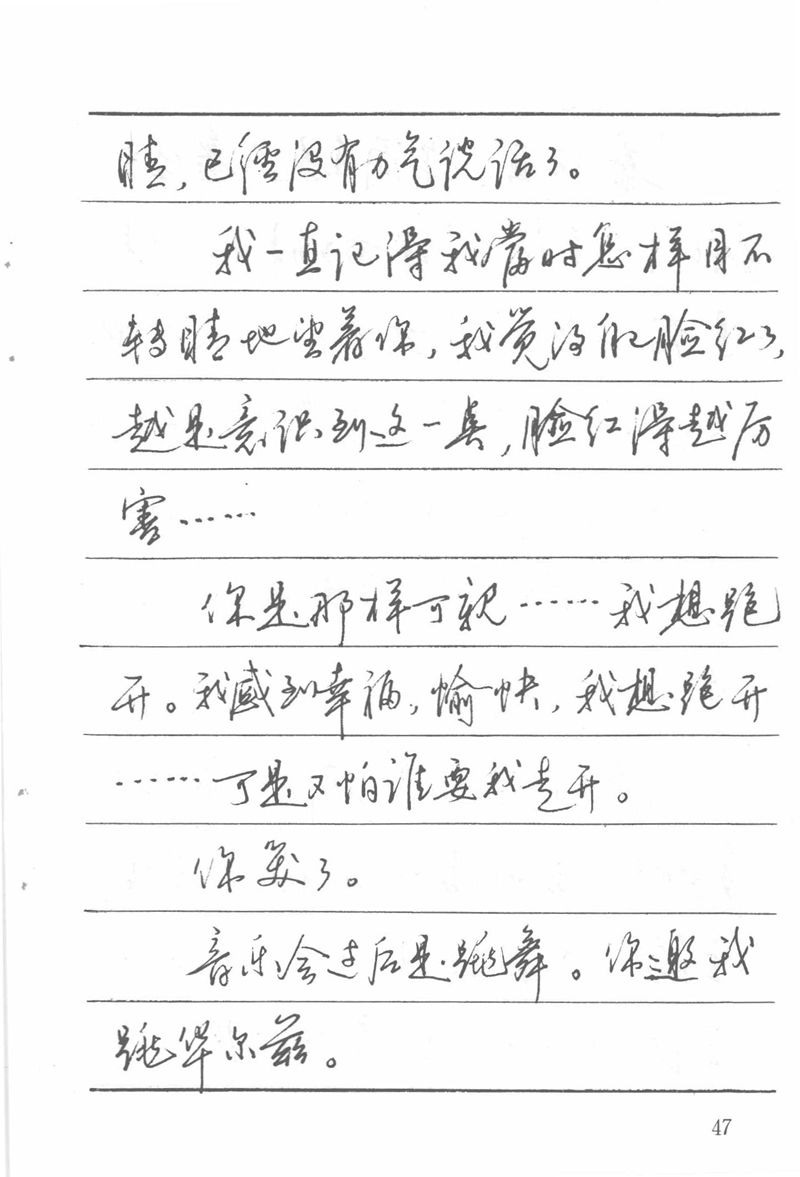 睛,已经没有力气说话了。
我一直记得我当时怎样目不
转睛地望着你,我觉得自己脸红了,
越是意识到这一点,脸红得越厉
害……
你是那样可亲……我想跑
开。我感到幸福,愉快,我想跑开
……可是又怕谁要我走开。
你笑了。
音乐会过后是跳舞。你邀我
跳华尔兹。
47